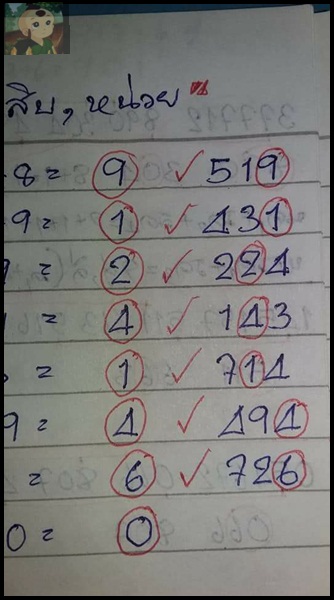 สิบ, หน่วย
8 = 9 ✓ 519
9 = 1 ✓ 431
= 2 ✓ 224
= 4 ✓ 143
= 1 ✓ 714
9 = 4 ✓ 494
= 6 ✓ 726
0 = 0